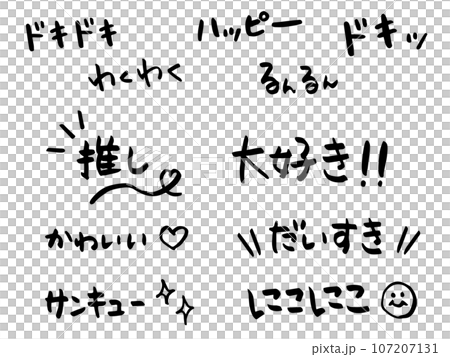 ドキドキ
ハッピー
ドキッ
わくわく
るんるん
推し
大好き!!
かわいい♡
\\ だいすき //
サンキュー
にこにこ
PIXTA
107207131